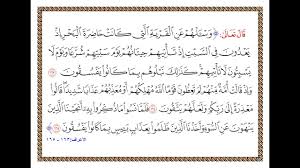 قال تعالى: ﴿ وَسْئَلْهُمْ عَنِ الْقَرْيَةِ الَّتِي كَانَتْ حَاضِرَةَ الْبَحْرِ إِذْ
يَعْدُونَ فِي السَّبْتِ إِذْ تَأْتِيهِمْ حِيتَانُهُمْ يَوْمَ سَبْتِهِمْ شُرَّعًا وَيَوْمَ لَا
يَسْبِتُونَ لَا تَأْتِيهِمْ كَذَٰلِكَ نَبْلُوهُم بِمَا كَانُوا يَفْسُقُونَ
وَإِذْ قَالَتْ أُمَّةٌ مِّنْهُمْ لِمَ تَعِظُونَ قَوْمًا اللَّهُ مُهْلِكُهُمْ أَوْ مُعَذِّبُهُمْ عَذَابًا شَدِيدًا قَالُوا
مَعْذِرَةً إِلَىٰ رَبِّكُمْ وَلَعَلَّهُمْ يَتَّقُونَ فَلَمَّا نَسُوا مَا ذُكِّرُوا بِهِ أَنجَيْنَا الَّذِينَ
يَنْهَوْنَ عَنِ السُّوءِ وَأَخَذْنَا الَّذِينَ ظَلَمُوا بِعَذَابٍ بَئِيسٍ بِمَا كَانُوا يَفْسُقُونَ ﴾
الأعراف: ١٦٣ - ١٦٥